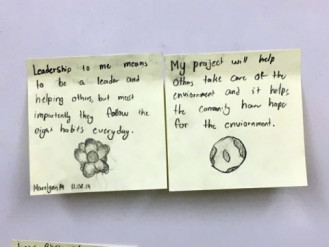 Leadership to me means
to be a leader and
helping others, but most
importently they follow the
eight habits everyday.
11.08.19
My project will help
Others take care of the
enviroment and it helps
the commuity have hope
for the enviornment.